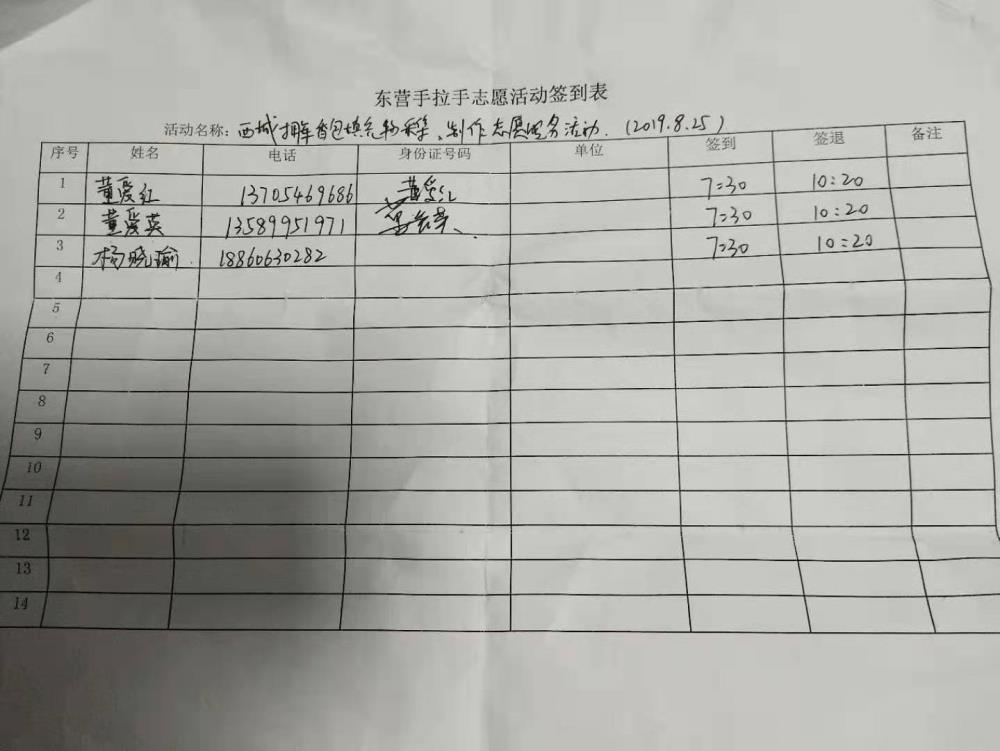 东营手拉手志愿活动签到表
活动名称：西城拥军香包填充物采集、制作志愿服务活动.（2019.8.25）
序号 姓名 电话 身份证号码 单位 签到 签退 备注
1 董爱红 13705469686 董爱红 7:30 10:20
2 董爱英 13589951971 7:30 10:20
3 杨晓瑜 18860630282 7:30 10:20
4
5
6
7
8
9
10
11
12
13
14